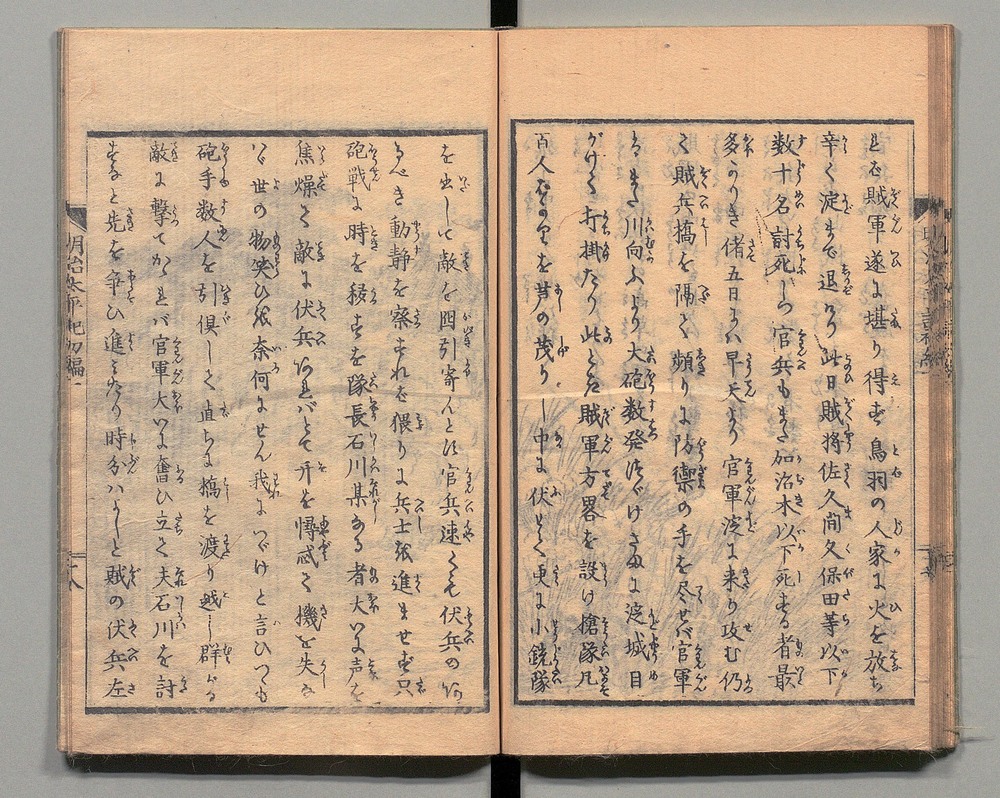 れば賊軍遂に堪り得ず鳥羽の人家に火を放ち
辛く淀まで退けり此日賊将佐久間久保田等以下
数十名討死しつ官兵もまた加治木以下死する者最
多かりき偖五日には早天より官軍淀に来り攻む仍
て賊兵橋を隔て頻りに防禦の手を尽せば官軍
またき川向ふより大砲数発つづけさまに淀城目
がけて打掛たり此とき賊軍方略を設け槍隊凡
百人あまりを芦の茂りし中に伏せて更に小銃隊
を出して敵を囮引寄んとす官兵速くも伏兵の
るべき動静を察すれを猥りに兵士を進ませず只
砲戦に時を移すを隊長石川某ある者大いに声を
焦燥て敵に伏兵あればとて斤を憚惑て機を失な
はゞ世の物笑ひを奈何にせん我につゞけと言ひつゝも
砲手数人を引倶して直ちに橋を渡り越し群がる
敵に撃てかゝれバ官軍大いに奮ひ立て夫石川を討
すなと先を争ひ進みたり時分ハよしと賊の伏兵左
明治太平記初編一
十八